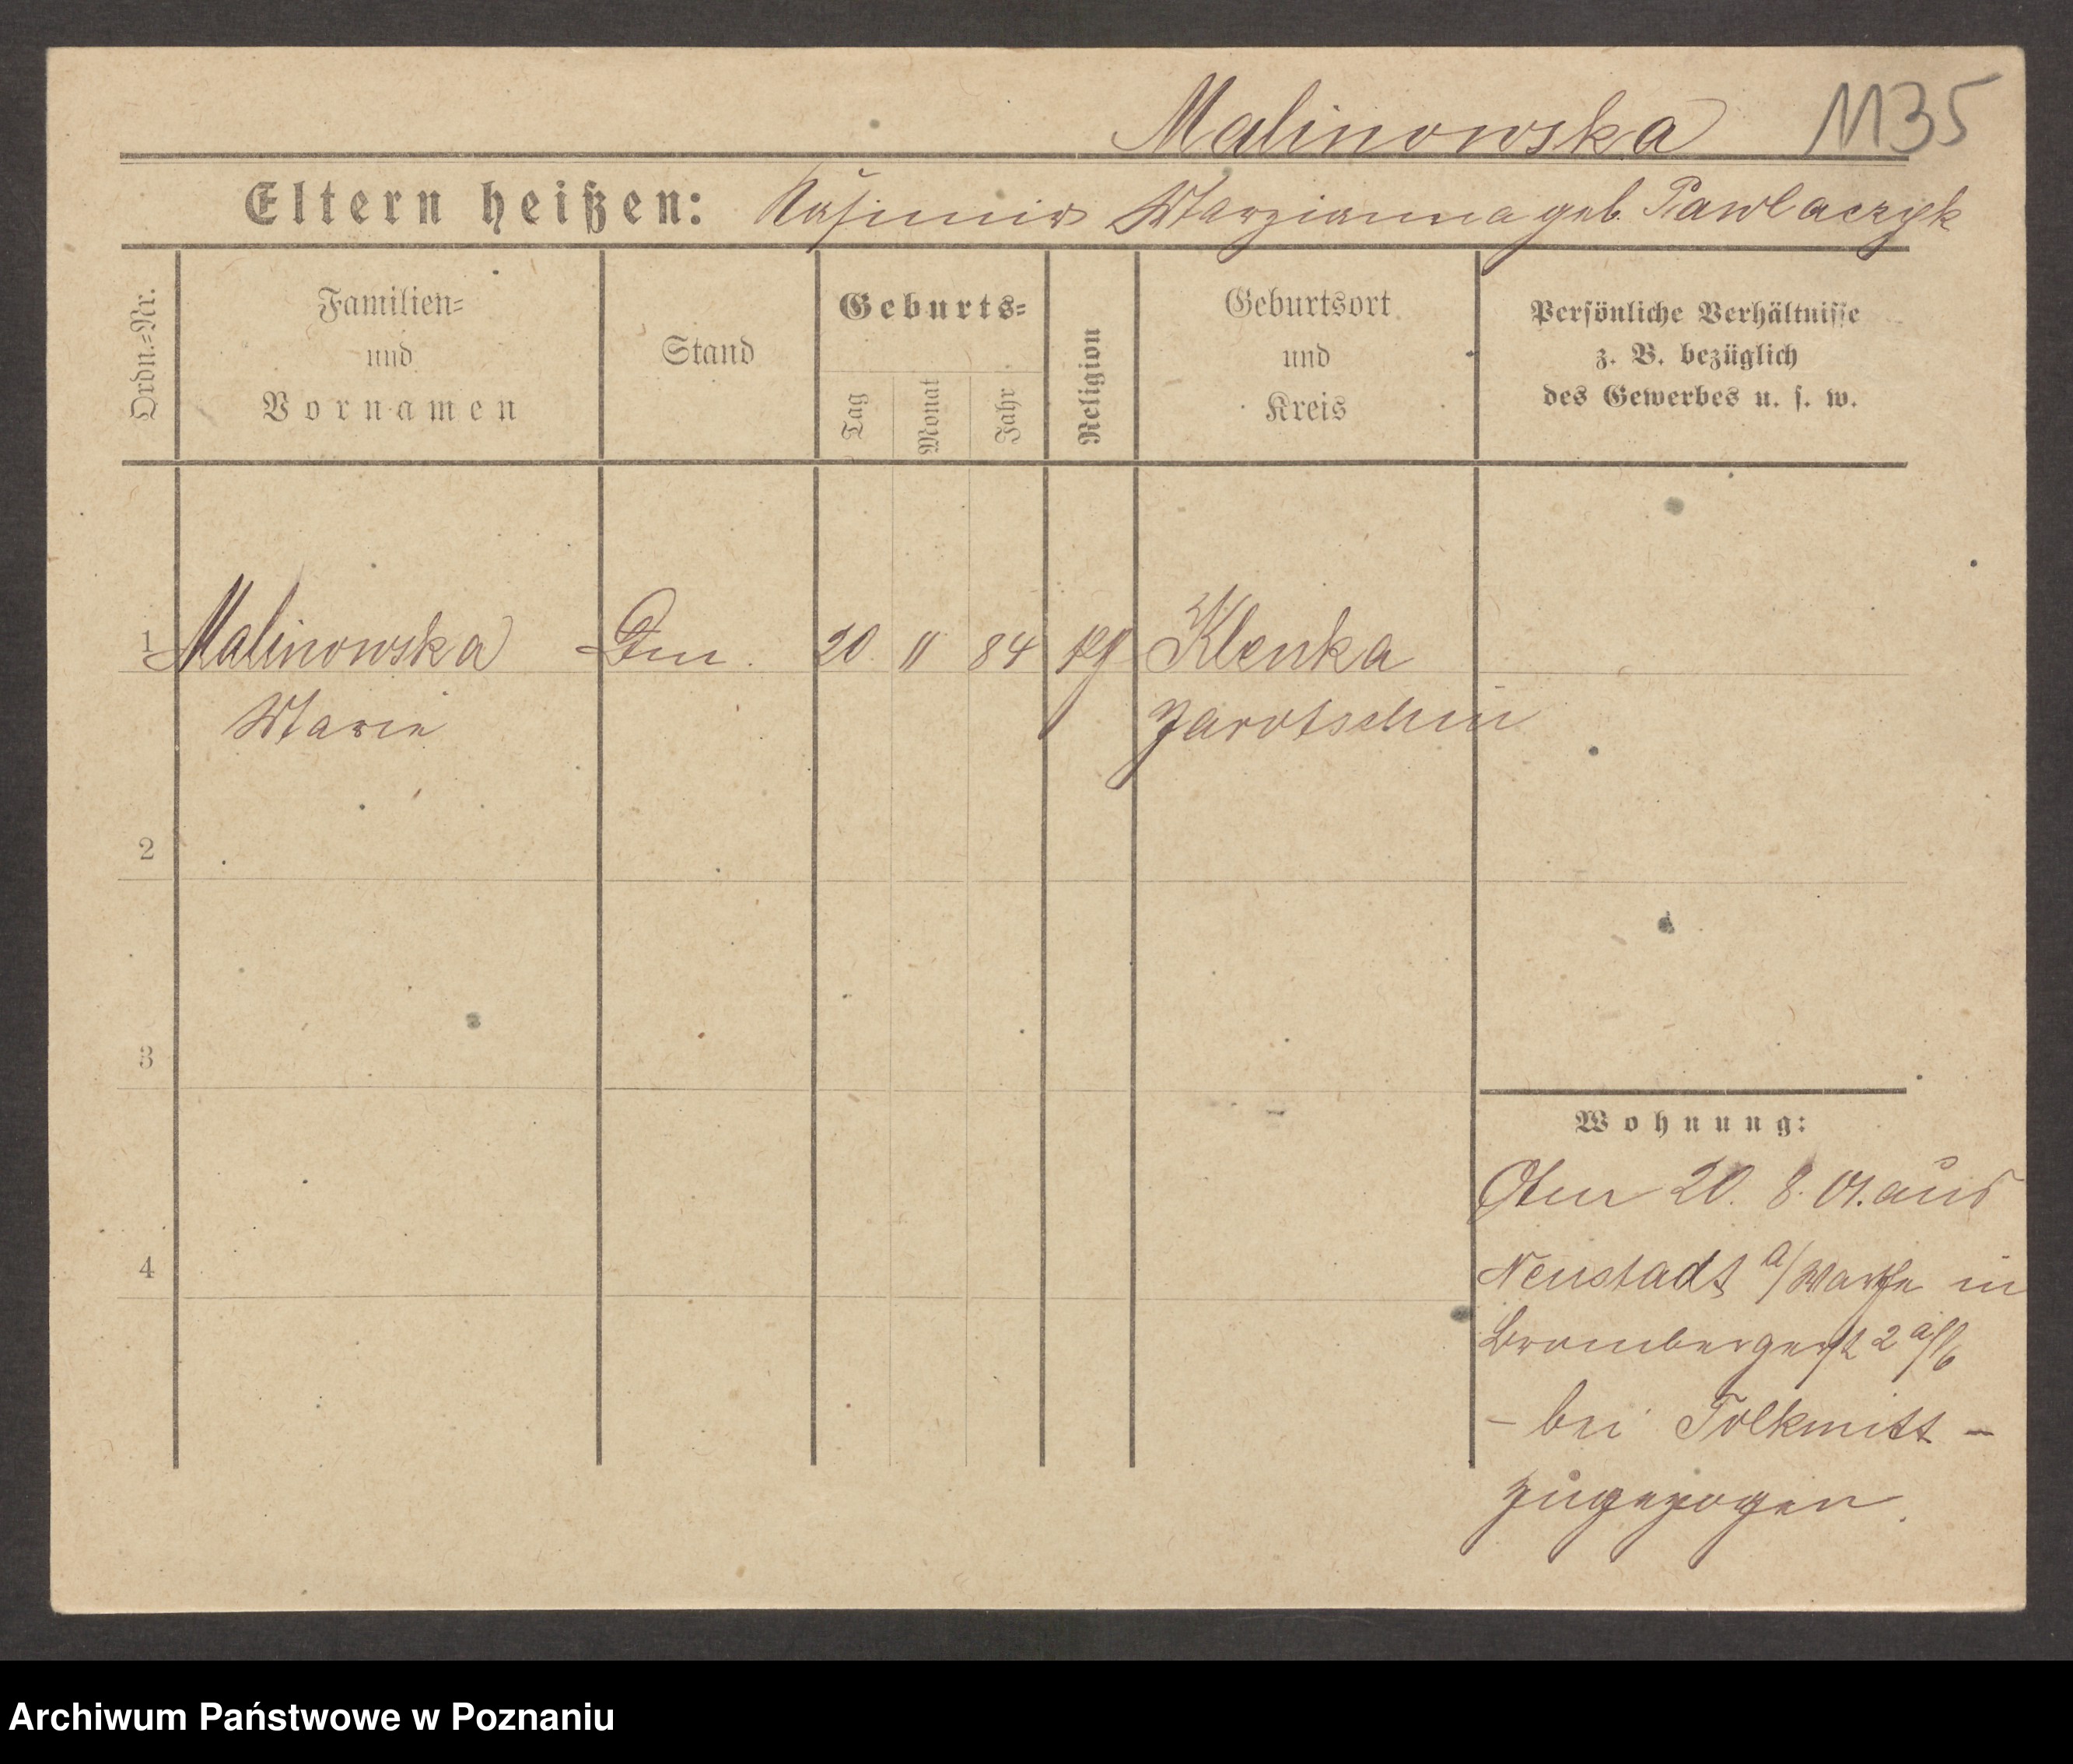 Malinowska 1135
Eltern heißen: Kasimir Marzianna geb. Pawlaczyk
Ordn.=Nr.
Familien=
und
Vornamen
Stand
Geburts=
Tag
Monat
Jahr
Religion
Geburtsort
und
Kreis
Persönliche Verhältnisse
z. B. bezüglich
des Gewerbes u. s. w.
1 Malinowska 20 11 84 Klenka
Marie Jarotschin
2
3
4
Wohnung:
20. 8. 01. aus
Neustadt a/Warthe in
Brombergerst 2
– bei Tolkmitt –
zugezogen.
Archiwum Państwowe w Poznaniu